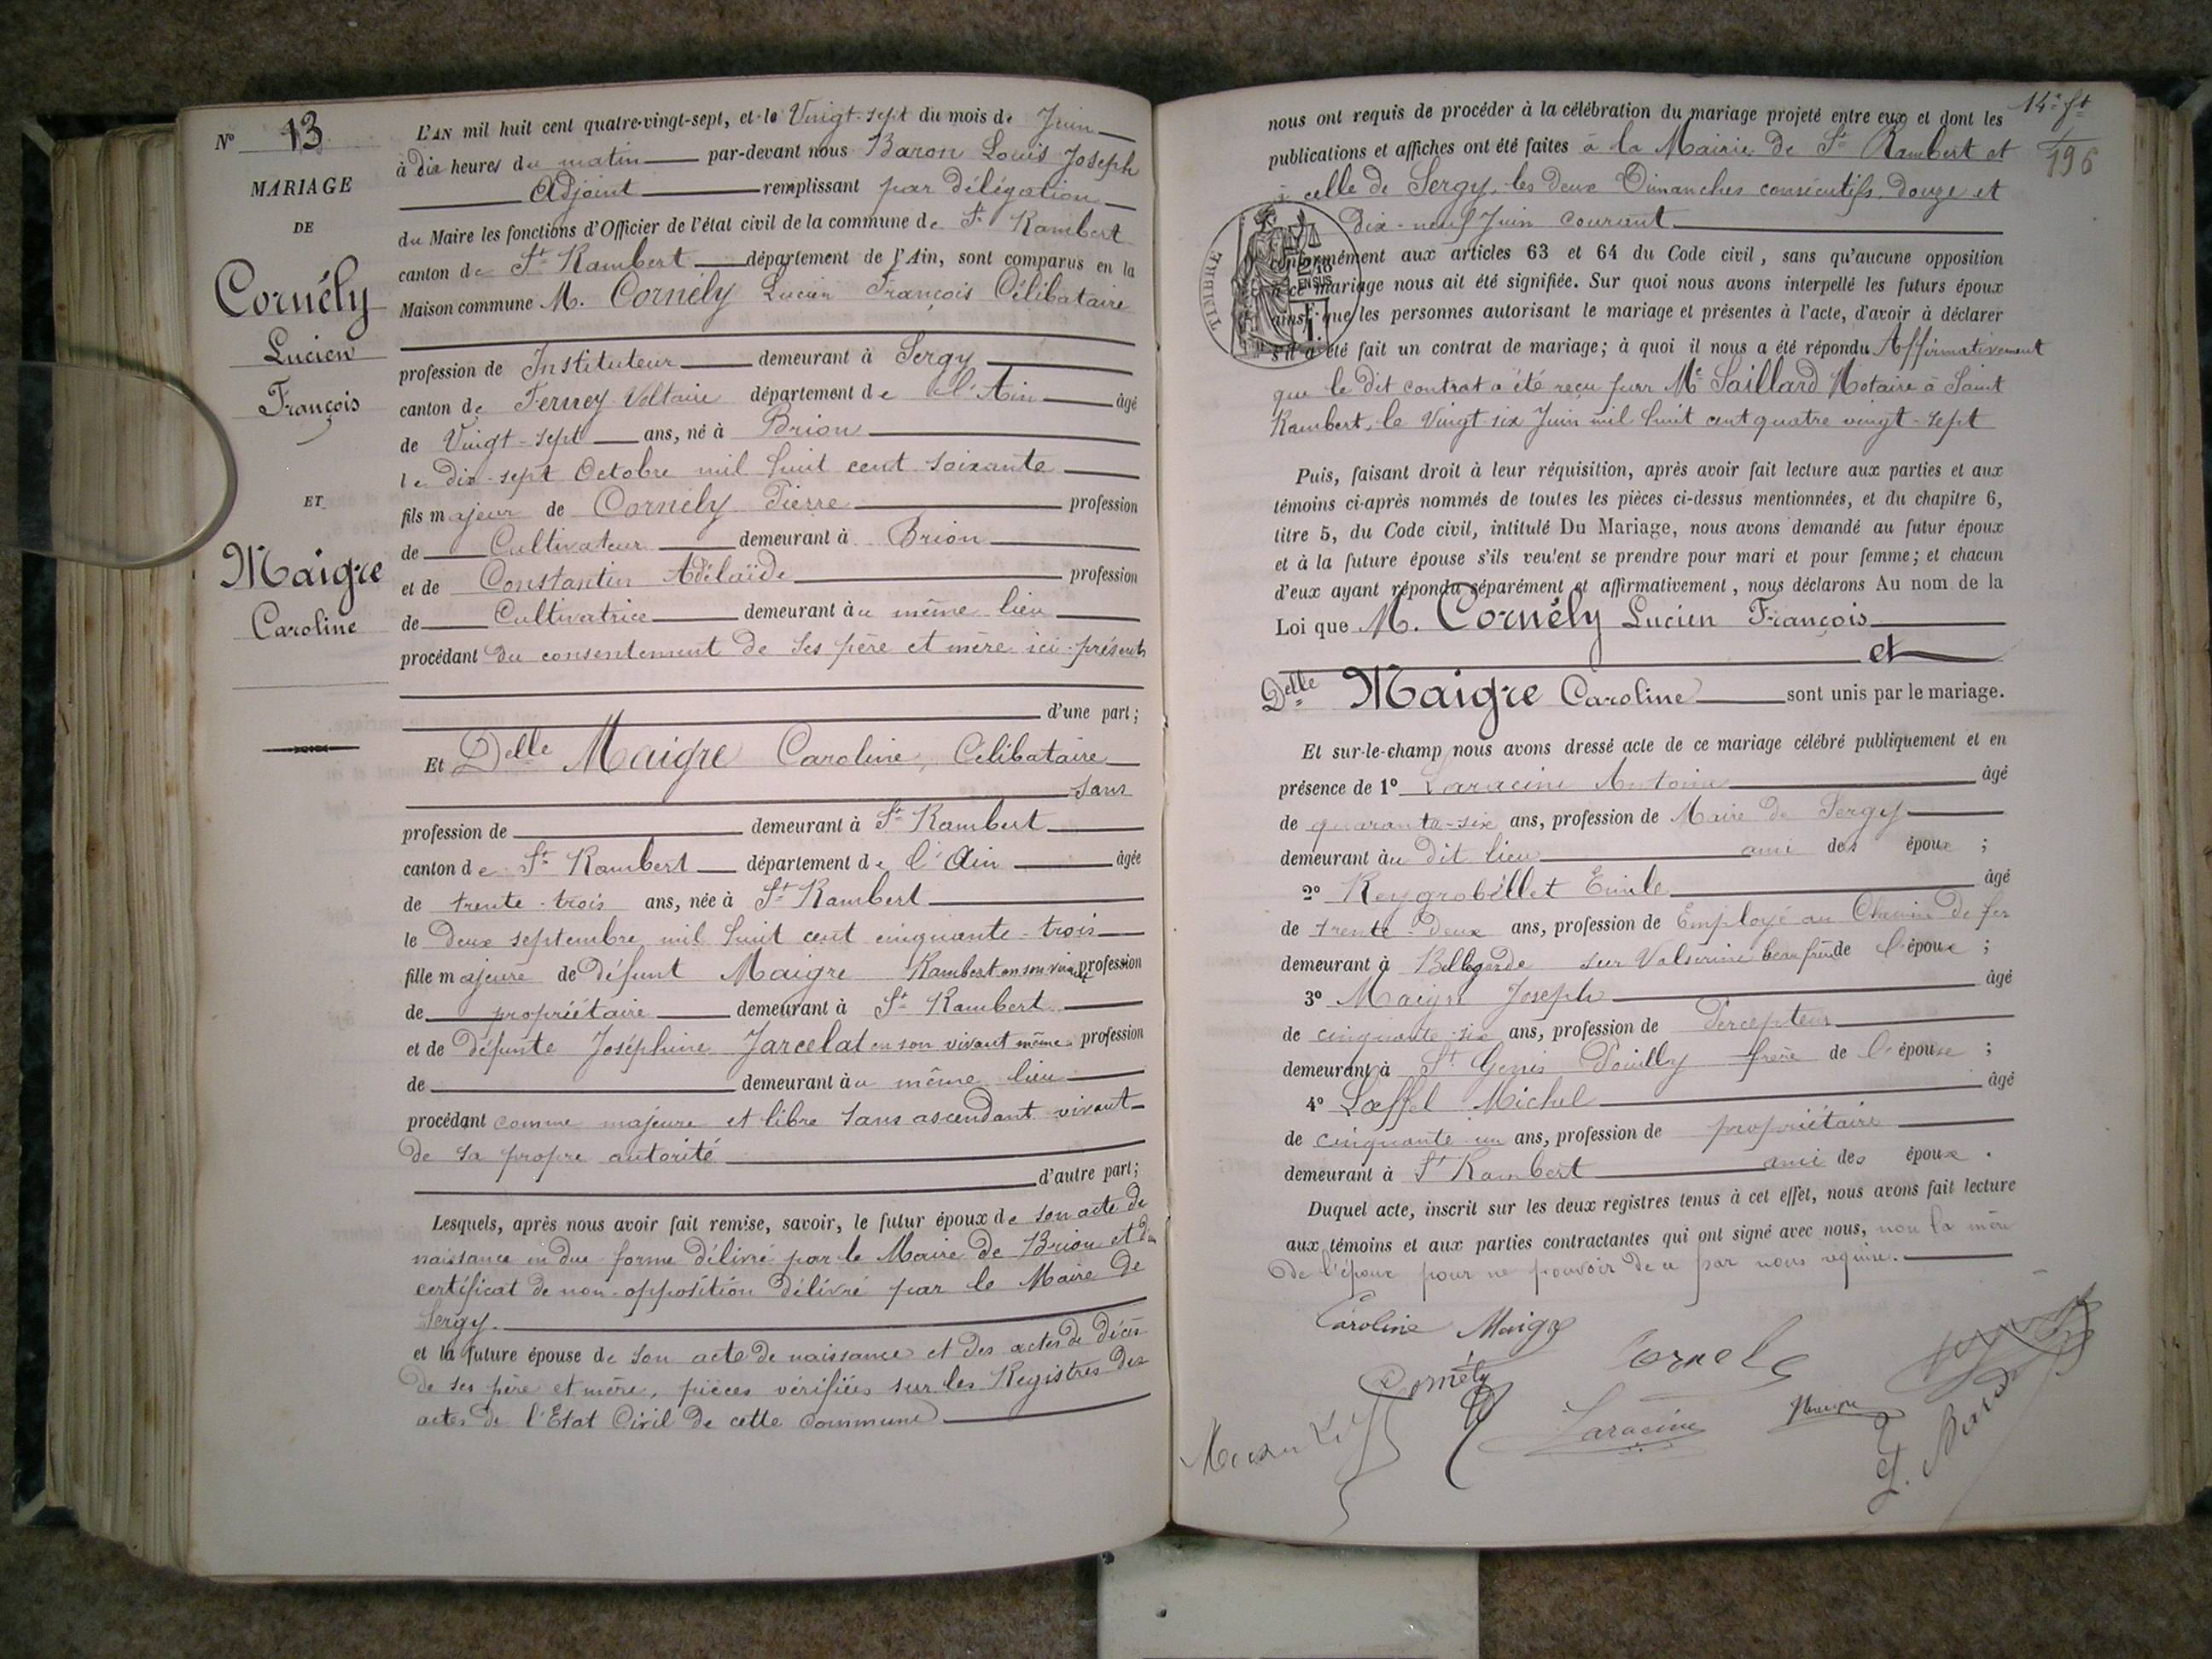 N° 13
MARIAGE
DE
Cornély
Lucien
François
ET
Maigre
Caroline
L'AN mil huit cent quatre-vingt-sept, et le Vingt-sept du mois de Juin
à dix heures du matin par-devant nous Baron Louis Joseph
Adjoint remplissant par délégation
du Maire les fonctions d'Officier de l'état civil de la commune de St Rambert
canton de St Rambert département de l'Ain, sont comparus en la
Maison commune M. Cornély Lucien François Célibataire
profession de Instituteur demeurant à Sergy
canton de Ferney Voltaire département de l'Ain âgé
de Vingt-sept ans, né à Brion
le Dix-sept Octobre mil huit cent soixante
fils majeur de Cornély Pierre profession
de Cultivateur demeurant à Brion
et de Constantin Adélaïde profession
de Cultivatrice demeurant au même lieu
procédant du consentement de ses père et mère ici présents
d'une part;
Et Delle Maigre Caroline, Célibataire
sans
profession de demeurant à St Rambert
canton de St Rambert département de l'Ain âgée
de trente-trois ans, née à St Rambert
le Deux septembre mil huit cent cinquante-trois
fille majeure de défunt Maigre Rambert en son vivant profession
de propriétaire demeurant à St Rambert
et de défunte Joséphine Jarcelat en son vivant même profession
de demeurant au même lieu
procédant comme majeure et libre sans ascendant vivant
de sa propre autorité
d'autre part;
Lesquels, après nous avoir fait remise, savoir, le futur époux de son acte de
naissance en due forme délivré par le Maire de Brion et du
certificat de non-opposition délivré par le Maire de
Sergy.
et la future épouse de son acte de naissance et des actes de décès
de ses père et mère, pièces vérifiées sur les Registres des
actes de l'Etat Civil de cette commune
14e ft
1/196
nous ont requis de procéder à la célébration du mariage projeté entre eux et dont les
publications et affiches ont été faites à la Mairie de St Rambert et
à celle de Sergy, les deux Dimanches consécutifs, douze et
dix-neuf Juin courant
TIMBRE
conformément aux articles 63 et 64 du Code civil, sans qu'aucune opposition
à ce mariage nous ait été signifiée. Sur quoi nous avons interpellé les futurs époux
ainsi que les personnes autorisant le mariage et présentes à l'acte, d'avoir à déclarer
s'il a été fait un contrat de mariage; à quoi il nous a été répondu Affirmativement
que le dit contrat a été reçu par Me Saillard Notaire à Saint
Rambert, le Vingt six Juin mil huit cent quatre vingt-sept
Puis, faisant droit à leur réquisition, après avoir fait lecture aux parties et aux
témoins ci-après nommés de toutes les pièces ci-dessus mentionnées, et du chapitre 6,
titre 5, du Code civil, intitulé Du Mariage, nous avons demandé au futur époux
et à la future épouse s'ils veulent se prendre pour mari et pour femme; et chacun
d'eux ayant répondu séparément et affirmativement, nous déclarons Au nom de la
Loi que M. Cornély Lucien François
et
Delle Maigre Caroline sont unis par le mariage.
Et sur-le-champ nous avons dressé acte de ce mariage célébré publiquement et en
présence de 1° Laracine Antoine âgé
de quarante-six ans, profession de Maire de Sergy
demeurant au dit lieu ami des époux;
2° Reygrobellet Emile âgé
de trente-deux ans, profession de Employé au Chemin de fer
demeurant à Bellegarde sur Valserine beau frère de l'époux;
3° Maigre Joseph âgé
de cinquante-six ans, profession de Percepteur
demeurant à St Genis Pouilly frère de l'épouse;
4° Lœffel Michel âgé
de cinquante un ans, profession de propriétaire
demeurant à St Rambert ami des époux.
Duquel acte, inscrit sur les deux registres tenus à cet effet, nous avons fait lecture
aux témoins et aux parties contractantes qui ont signé avec nous, non la mère
de l'époux pour ne pouvoir de ce par nous requise.
Caroline Maigre
Cornely
Cornély
Laracine
Maigre
L. Baron